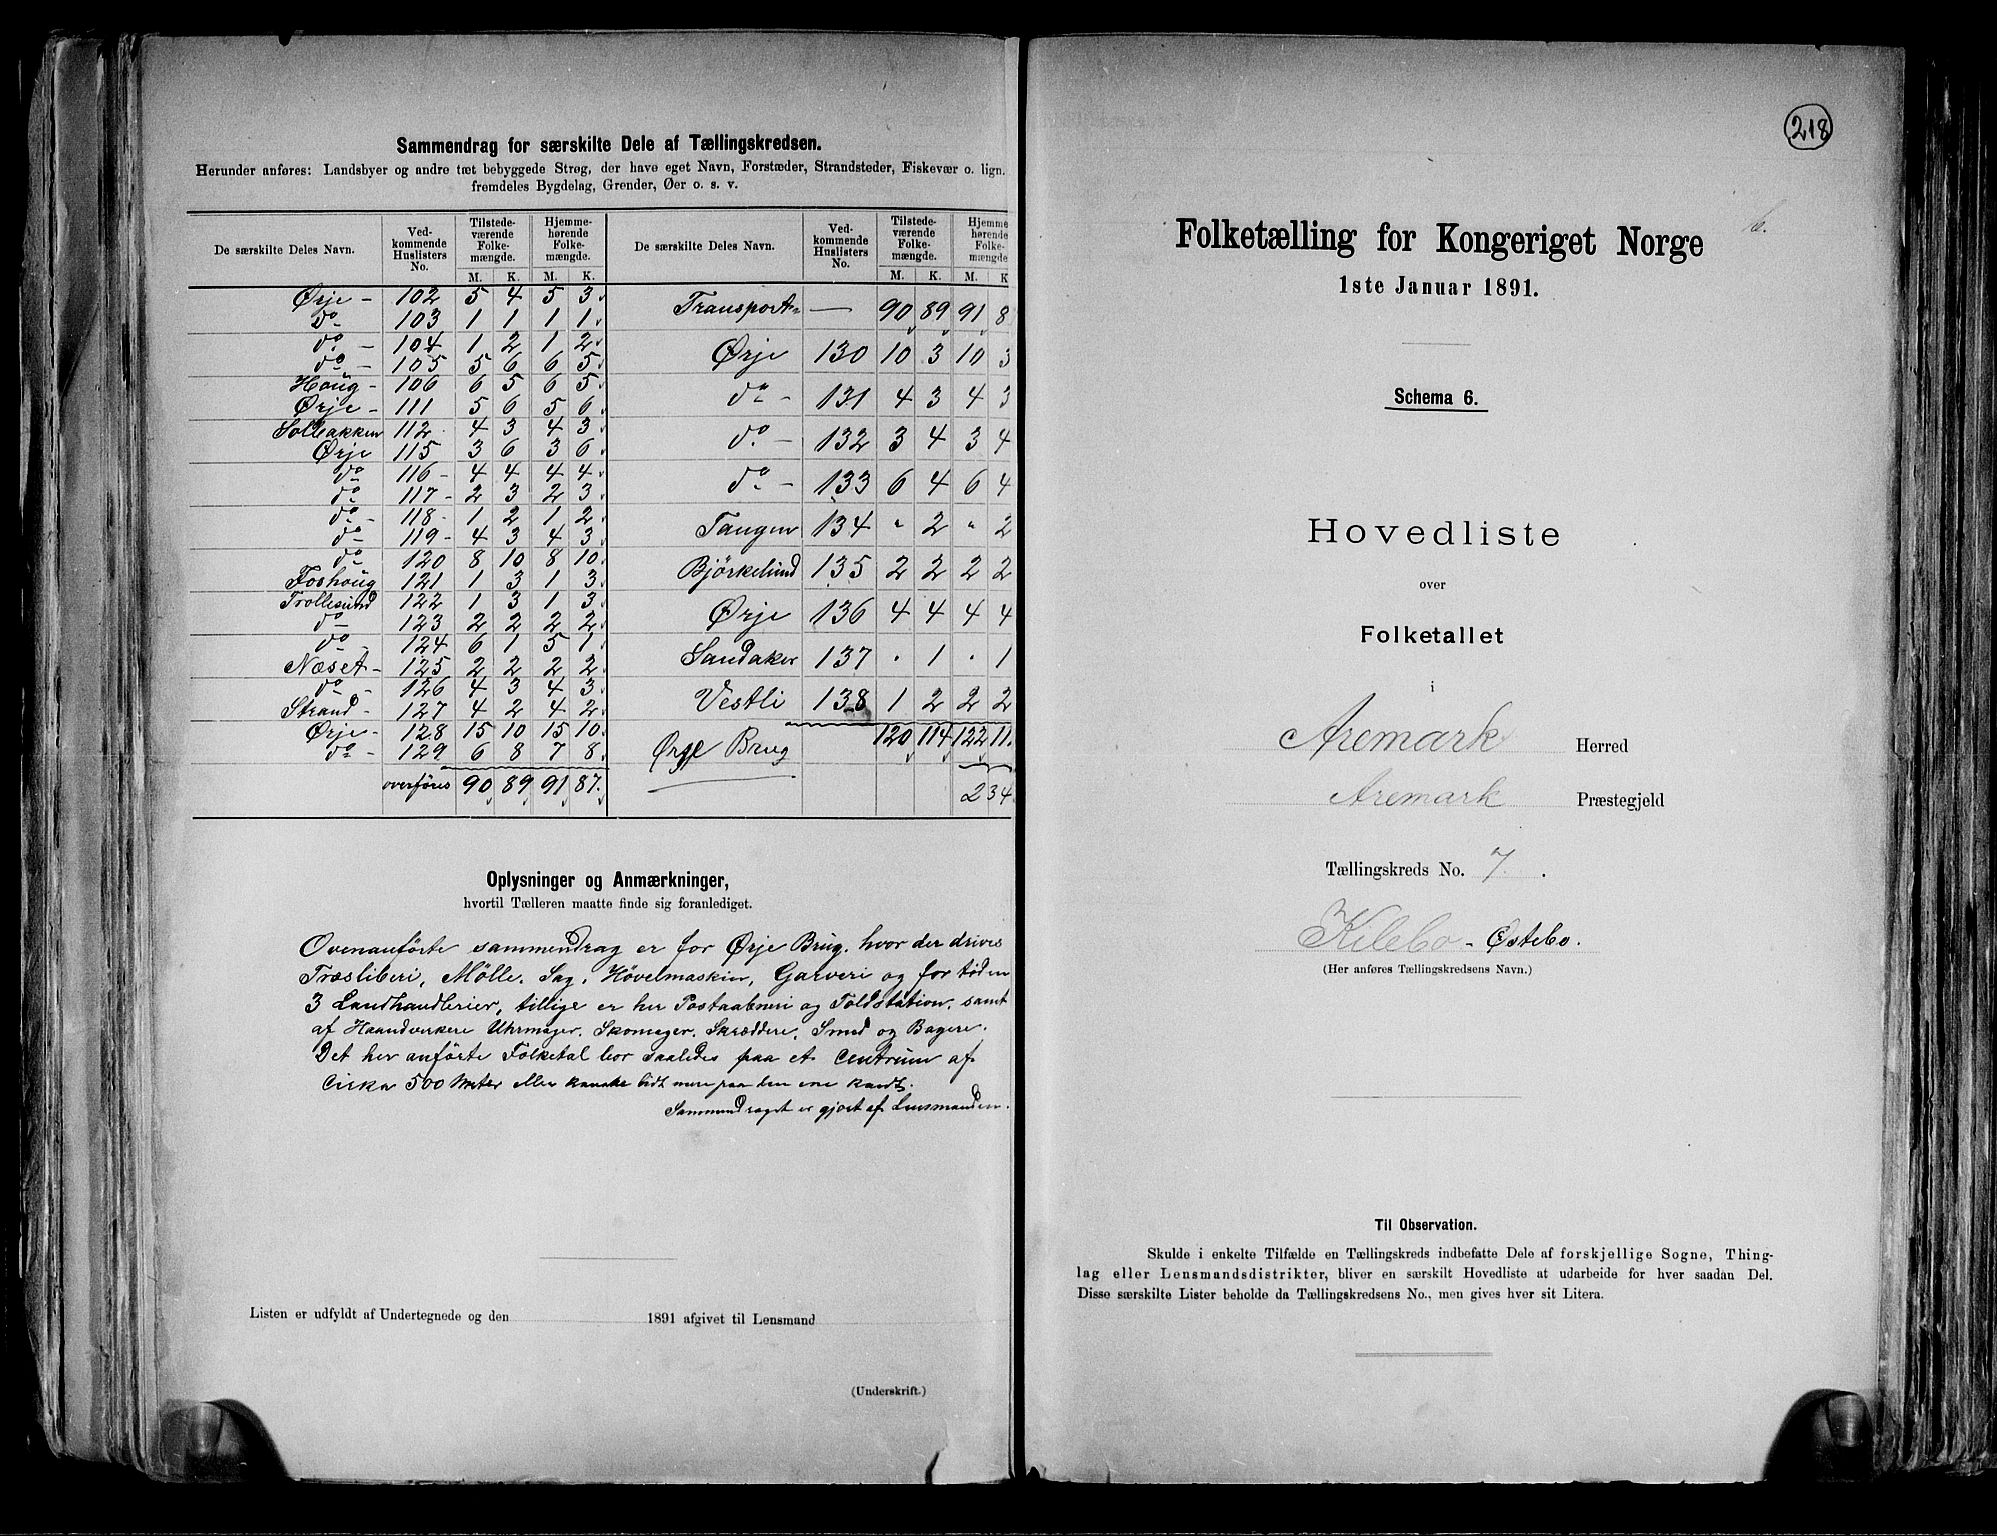 Sammendrag for særskilte Dele af Tællingskredsen.
Herunder anføres: Landsbyer og andre tæt bebyggede Strøg, der have eget Navn, Forstæder, Strandsteder, Fiskevær o. lign.
fremdeles Bygdelag, Grender, Øer o. s. v.
De særskilte Deles Navn. Ved-kommende Huslisters No. Tilstede-værende Folke-mængde. M. K. Hjemme-hørende Folke-mængde. M. K.
Ørje - 102 5 4 5 3
do 103 1 1 1 1
do - 104 1 2 1 2
do - 105 5 6 6 5
Houg - 106 6 5 6 5
Ørje - 111 5 6 5 6
Solbakken 112 4 3 4 3
Ørje 115 3 6 3 6
do 116 - 4 4 4 4
do 117 - 2 3 2 3
do - 118 - 1 2 1 2
do 119 - 4 3 4 3
do 120 8 10 8 10
Foshoug 121 1 3 1 3
Trollesund 122 1 3 1 3
do 123 2 2 2 2
do - 124 6 1 5 1
Næset - 125 2 2 2 2
do - 126 4 3 4 3
Strand - 127 4 2 4 2
Ørje - 128 15 10 15 10
do - 129 6 8 7 8
overføres 90 89 91 87
De særskilte Deles Navn. Ved-kommende Huslisters No. Tilstede-værende Folke-mængde. M. K. Hjemme hørende Folke-mængde M. K
Transport - 90 89 91 8
Ørje 130 10 3 10 3
do - 131 4 3 4 3
do - 132 3 4 3 4
do - 133 6 4 6 4
Tangen 134 " 2 " 2
Bjørkelund 135 2 2 2 2
Ørje 136 4 4 4 4
Sandaker 137 . 1 . 1
Vestli 138 1 2 2 2
Ørje Brug 120 114 122 11
234
Oplysninger og Anmærkninger,
hvortil Tælleren maatte finde sig foranlediget.
Ovenanførte sammendrag er for Ørje Brug, hvor der drives
Træsliberi, Mølle, Sag, Høvelmaskin, Garveri og for tiden
3 Landhandlerier, tillige er her Postaabneri og Toldstation, samt
af Haandværkere Uhrmager, Skomager, Skræddere, Smed og Bagere.
Det her anførte Folketal bor saaledes paa et Centrum af
Cirka 500 Meter eller kanske lidt mere paa den ene kandt.
Sammendraget er gjort af Lensmanden.
Listen er udfyldt af Undertegnede og den 1891 afgivet til Lensmand
(Underskrift.)
218
6.
Folketælling for Kongeriget Norge
1ste Januar 1891.
Schema 6.
Hovedliste
over
Folketallet
i
Aremark Herred
Aremark Præstegjeld
Tællingskreds No. 7.
Kilebo - Østebo.
(Her anføres Tællingskredsens Navn.)
Til Observation.
Skulde i enkelte Tilfælde en Tællingskreds indbefatte Dele af forskjellige Sogne, Thing-
lag eller Lensmandsdistrikter, bliver en særskilt Hovedliste at udarbeide for hver saadan Del.
Disse særskilte Lister beholde da Tællingskredsens No., men gives hver sit Litera.